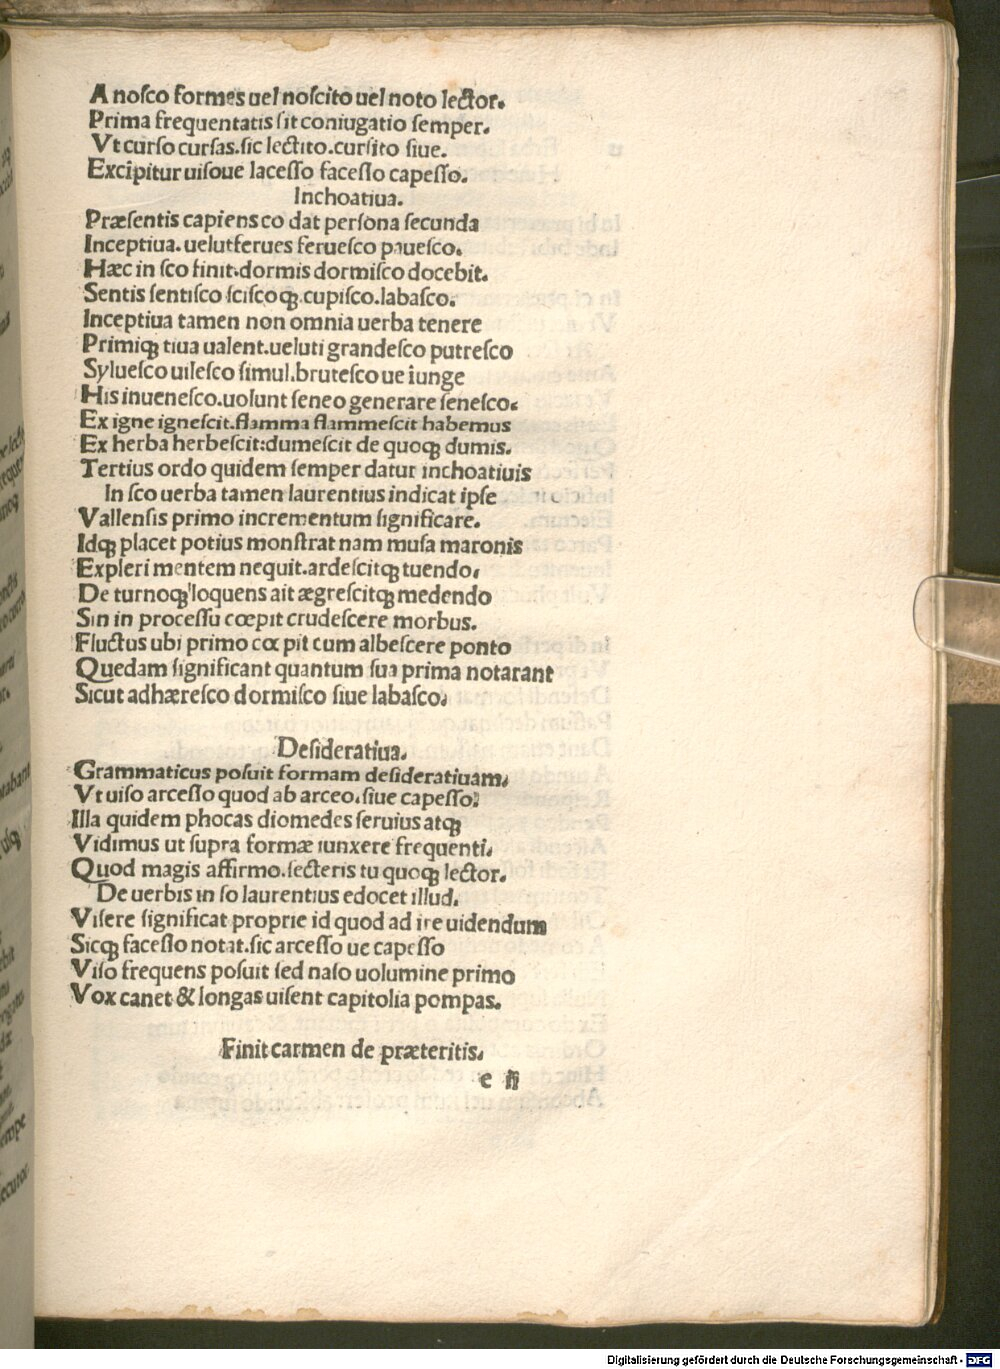 A noſco formes uel noſcito uel noto lector.
Prima frequentatis ſit coniugatio ſemper.
Vt curſo curſas.ſic lectito.curſito ſiue.
Excipitur uiſoue laceſſo faceſſo capeſſo.
Inchoatiua.
Præſentis capiens co dat perſona ſecunda
Inceptiua.uelut ferues ferueſco paueſco.
Hæc in ſco finit.dormis dormiſco docebit.
Sentis ſentiſco ſciſcoqꝫ.cupiſco.labaſco.
Inceptiua tamen non omnia uerba tenere
Primiqꝫ tiua ualent.ueluti grandeſco putreſco
Sylueſco uileſco ſimul.bruteſco ue iunge
His inueneſco.uolunt ſeneo generare ſeneſco.
Ex igne igneſcit.flamma flammeſcit habemus
Ex herba herbeſcit:dumeſcit de quoqꝫ dumis.
Tertius ordo quidem ſemper datur inchoatiuis
In ſco uerba tamen laurentius indicat ipſe
Vallenſis primo incrementum ſignificare.
Idqꝫ placet potius monſtrat nam muſa maronis
Expleri mentem nequit.ardeſcitqꝫ tuendo.
De turnoqꝫ loquens ait ægreſcitqꝫ medendo
Sin in proceſſu cœpit crudeſcere morbus.
Fluctus ubi primo cœpit cum albeſcere ponto
Quedam ſignificant quantum ſua prima notarant
Sicut adhæreſco dormiſco ſiue labaſco.
Deſideratiua.
Grammaticus poſuit formam deſideratiuam.
Vt uiſo arceſſo quod ab arceo.ſiue capeſſo:
Illa quidem phocas diomedes ſeruius atqꝫ
Vidimus ut ſupra formæ iunxere frequenti.
Quod magis affirmo.ſecteris tu quoqꝫ lector.
De uerbis in ſo laurentius edocet illud.
Viſere ſignificat proprie id quod ad ire uidendum
Sicqꝫ faceſſo notat.ſic arceſſo ue capeſſo
Viſo frequens poſuit ſed naſo uolumine primo
Vox canet & longas uiſent capitolia pompas.
Finit carmen de præteritis.
e ii
Digitalisierung gefördert durch die Deutsche Forschungsgemeinschaft - DFG